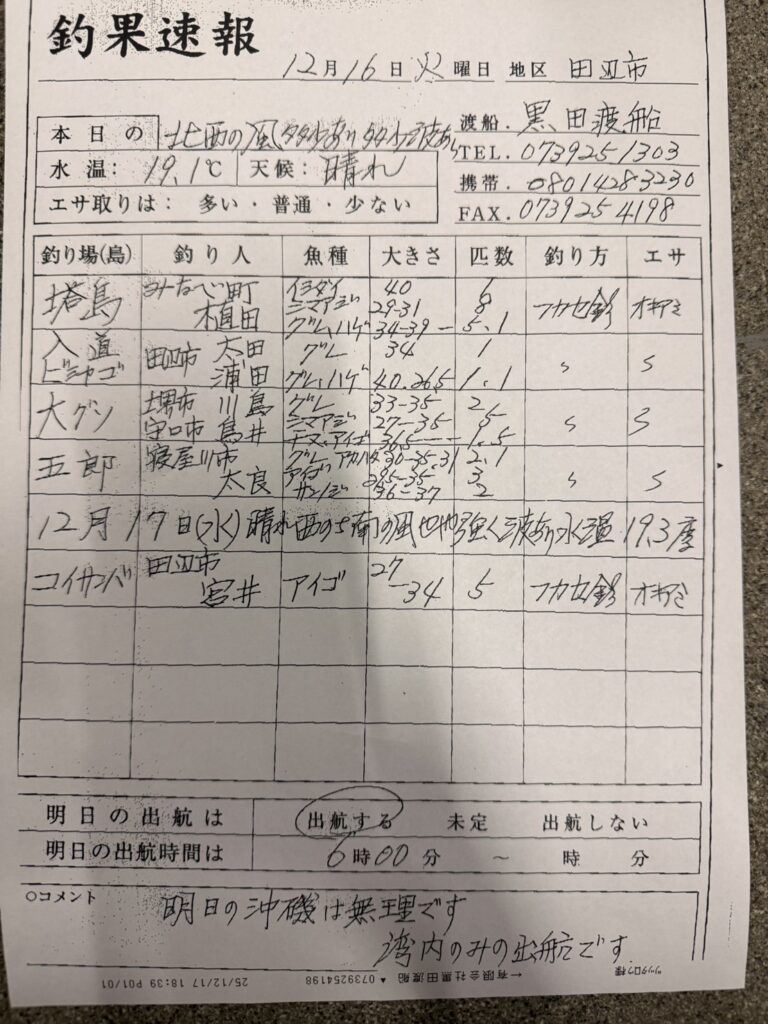 釣果速報
12月16日 火曜日 地区 田辺市
本日の 北西の風 多少あり 多少波あり
水温: 19.1℃ 天候: 晴れ
エサ取りは: 多い・普通・少ない
渡船. 黒田渡船
TEL. 0739251303
携帯. 08014283230
FAX. 0739254198
釣り場(島) 釣り人 魚種 大きさ 匹数 釣り方 エサ
塔島 みなべ町 植田 イシダイ 40 1
シマアジ 29-31 8 フカセ釣 オキアミ
グレ、ハゲ 34-39 ― 5.1
入道 田辺市 太田 グレ 34 1 〃 〃
ビシャゴ 浦田 グレ、ハゲ 40.26.5 1.1
大グシ 堺市 川島 グレ 33-35 2 〃 〃
守口市 島井 シマアジ 27-35 5
チヌ、アイゴ 36.5 ― 1.5
五郎 寝屋川市 太良 グレ アカハタ 30-35.31 2.1 〃 〃
アイゴ 26.5-35 3
サンノジ 36-37 2
12月17日(水) 晴れ 西のち南の風 やや強く 波あり 水温 19.3度
コイサンバ 田辺市 宮井 アイゴ 27-34 5 フカセ釣 オキアミ
明日の出航は 出航する 未定 出航しない
明日の出航時間は 6時00分 ～ 時 分
○コメント
明日の沖磯は無理です
湾内のみの出航です
25/12/17 18:39 P01/01 0739254198 ▲ ←有限会社黒田渡船 ツッタロウ様